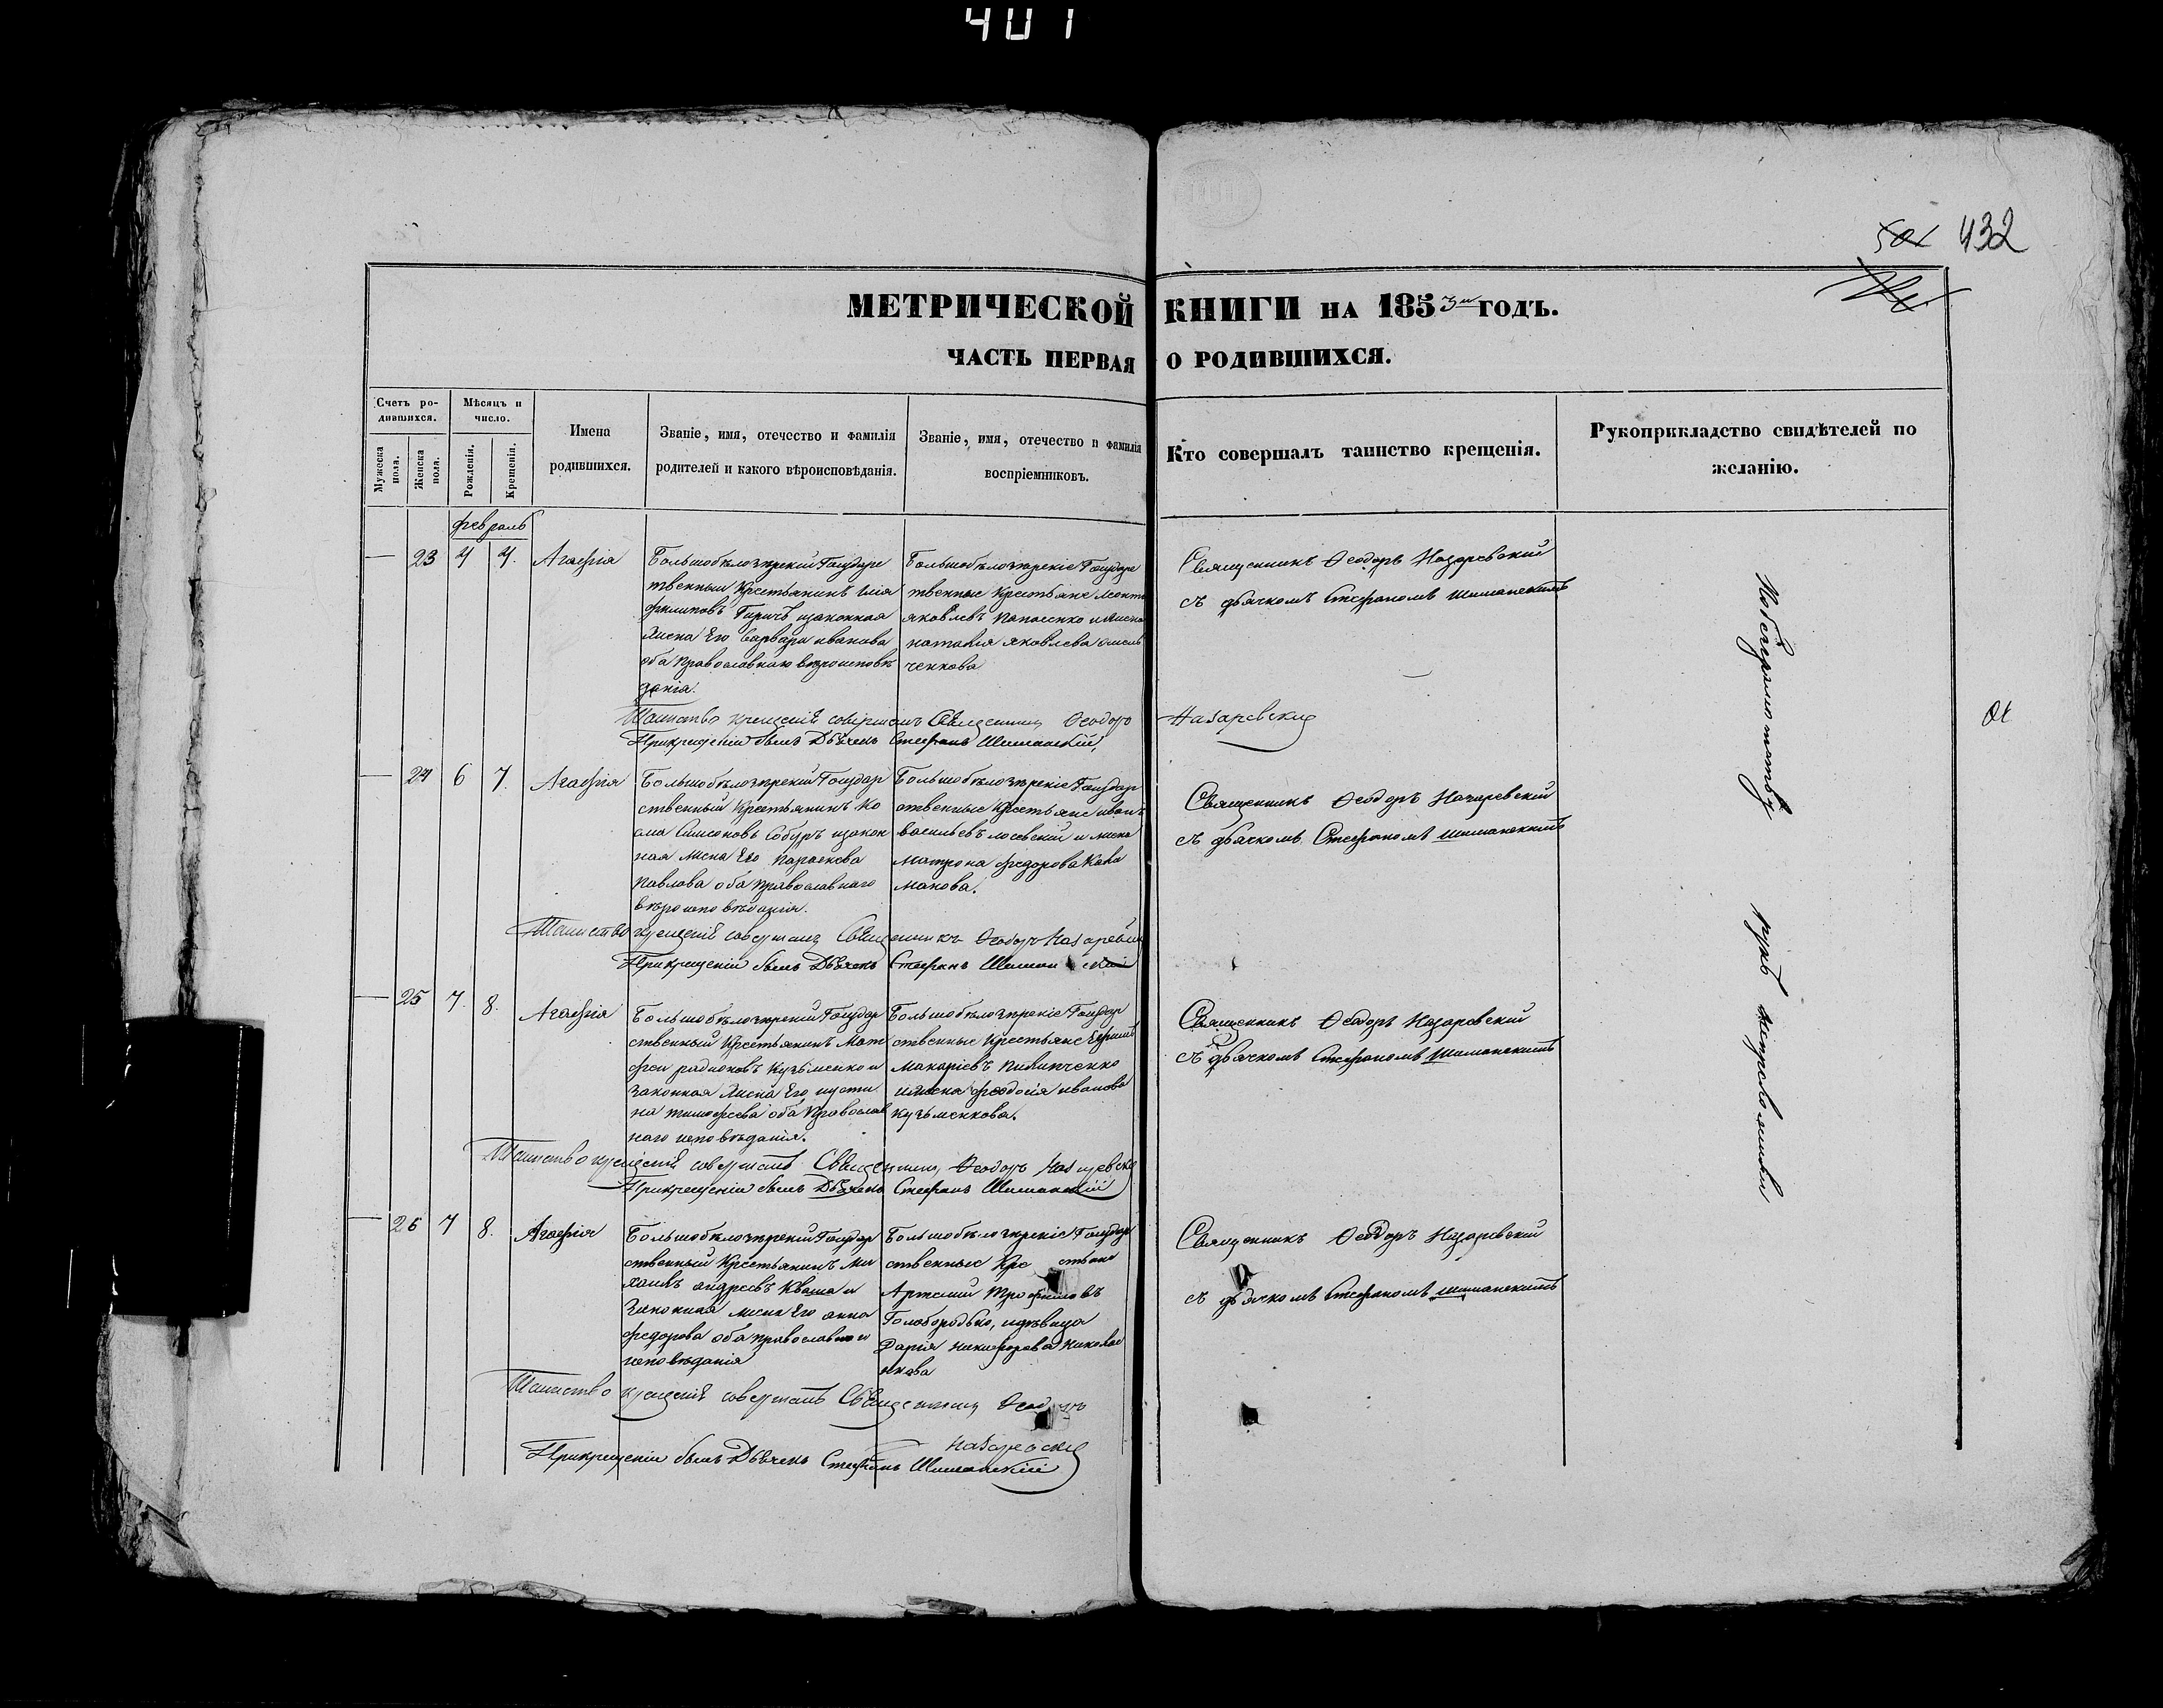 401
432
МЕТРИЧЕСКОЙ КНИГИ НА 1853й ГОДЪ.
ЧАСТЬ ПЕРВАЯ О РОДИВШИХСЯ.
Счетъ ро-
дившихся.
Мужеска пола.
Женска пола.
Мѣсяцъ и
число.
Рожденія.
Крещенія.
Имена
родившихся.
Званіе, имя, отечество и фамилія
родителей и какого вѣроисповѣданія.
Званіе, имя, отечество и фамилія
воспріемниковъ.
Кто совершалъ таинство крещенія.
Рукоприкладство свидѣтелей по
желанію.
февраль
23 4 4. Агафія
Большобѣлозѣрскій Государс
твенный Крестьянинъ Илія
филиповъ Гиричъ изаконная
жена Его варвара иванова
оба православнаго вѣроисповѣ
данія.
Большобѣлозѣрскіе Государс
твенные Крестьяне Леонти
яковлевъ Панасенко
наталія яковлева омель
ченкова
Священникъ Ѳеодоръ Назаревскій
съ дьячкомъ Стефаномъ Шиманскимъ
Таинство крещенія совершалъ Священникъ Ѳеодоръ Назаревскій
При крещеніи былъ Дьячекъ Стефанъ Шиманскій
24 6 7. Агафія
Большобѣлозѣрскій Государ
ственный Крестьянинъ Ко
сма Симоновъ Собуръ изакон
ная жена Его Параскева
Павлова оба православнаго
вѣроисповѣданія.
Большобѣлозѣрскіе Государ
ственные Крестьяне иванъ
васильевъ лосевскій и жена
Матрона федорова Кала
макова.
Священникъ Ѳеодоръ Назаревскій
съ дьячкомъ Стефаномъ Шиманскимъ
Таинство крещенія совершалъ Священникъ Ѳеодоръ Назаревскій
При крещеніи былъ Дьячекъ Стефанъ Шиманскій
25 7. 8. Агафія
Большобѣлозѣрскій Государ
ственный Крестьянинъ Мат
фей радионовъ Кузьменко и
законная жена Его иусти
на тимофеева оба Православ
наго исповѣданія.
Большобѣлозѣрскіе Государ
ственные Крестьяне
Макаріевъ Пилипченко
и жена феодосія иванова
кузьменкова.
Священникъ Ѳеодоръ Назаревскій
съ дьячкомъ Стефаномъ Шиманскимъ
Таинство крещенія совершалъ Священникъ Ѳеодоръ Назаревскій
При крещеніи былъ Дьячекъ Стефанъ Шиманскій
26 7 8. Агафія
Большобѣлозѣрскій Государ
ственный Крестьянинъ Ми
хаилъ андреевъ Кваша и
законная жена Его анна
федорова оба православнаго
исповѣданія
Большобѣлозѣрскіе Государ
ственные Кре стьяне
Артемій Трофимовъ
Голобородько, идѣвица
Дарія никифорова Николае
нкова
Священникъ Ѳеодоръ Назаревскій
съ дьячкомъ Стефаномъ Шиманскимъ
Таинство крещенія совершалъ Священникъ Ѳеодоръ
Назаревскій
При крещеніи былъ Дьячекъ Стефанъ Шиманскій
рукѣ